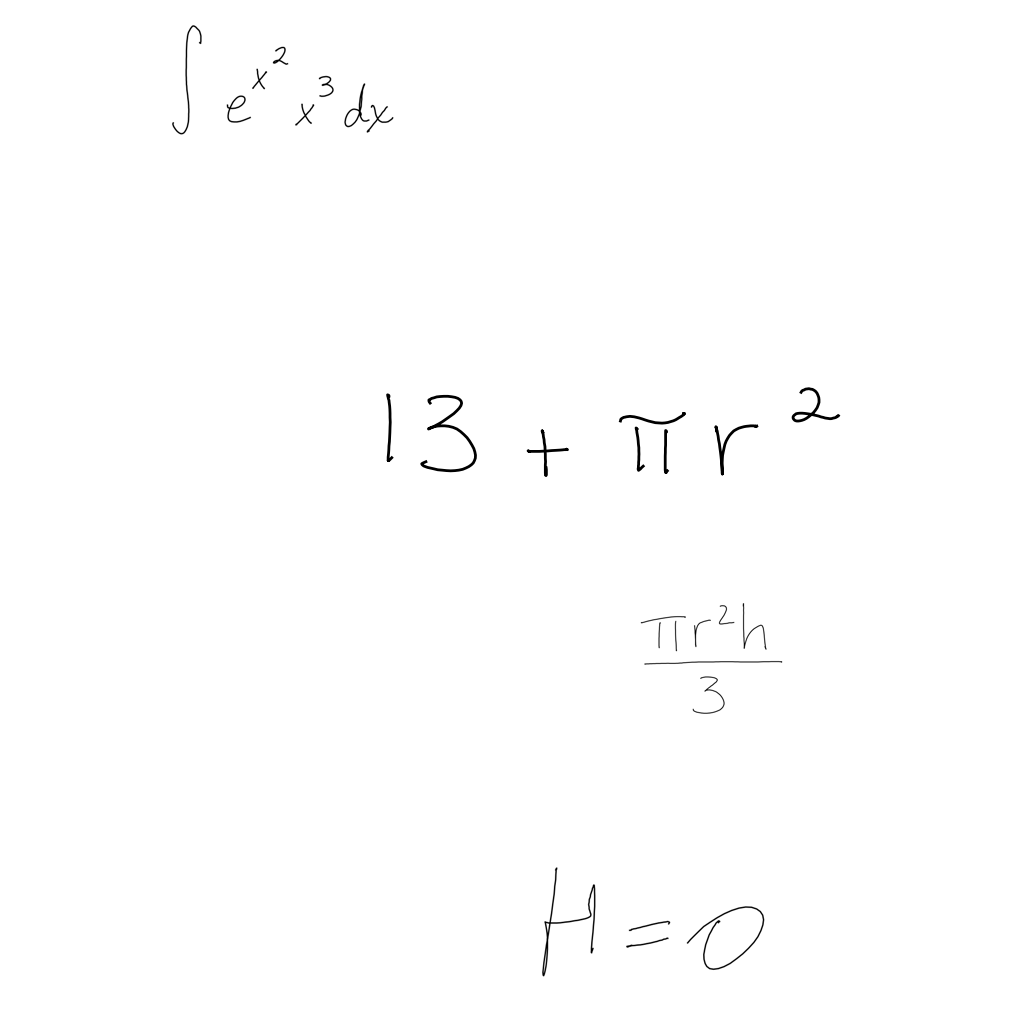 ∫ e^{x^2} x^3 dx
13 + π r^2
\frac{πr^2h}{3}
H = 0